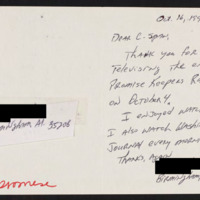 Oct. 16, 199
Dear C-Span,
Thank you for
televising the en
Promise Keepers Ra
on October 4.
I enjoyed watch
I also watch Washin
Journal every mornin
Thanks, again
Birmingham,
mingham, AL 35208
promise